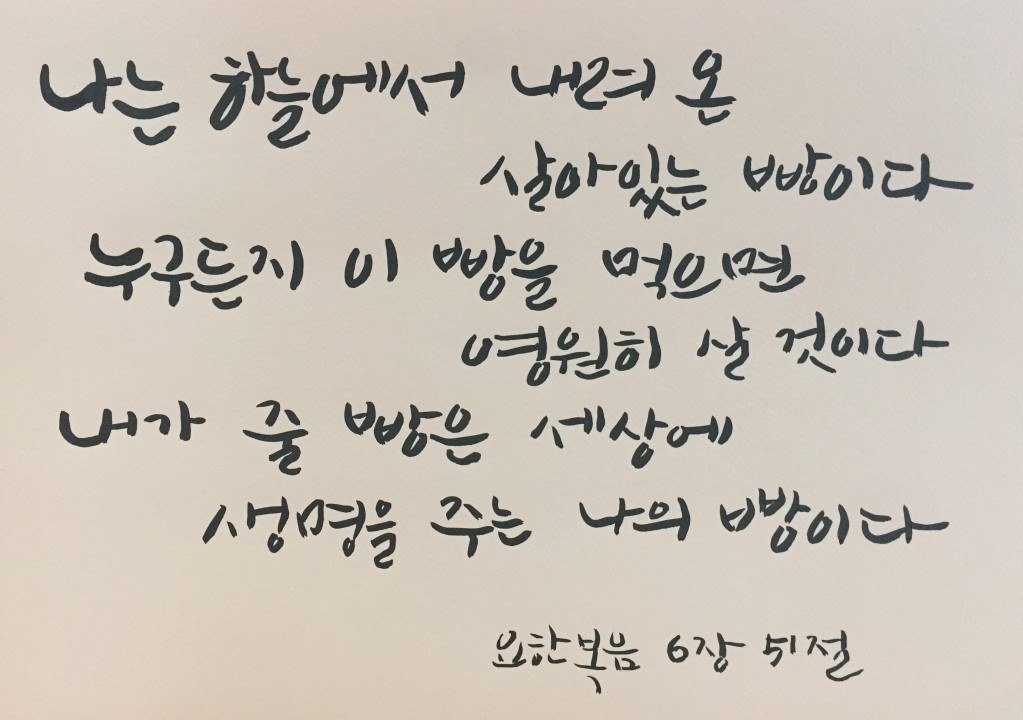 나는 하늘에서 내려 온
살아있는 빵이다
누구든지 이 빵을 먹으면
영원히 살 것이다
내가 줄 빵은 세상에
생명을 주는 나의 빵이다
요한복음 6장 51절